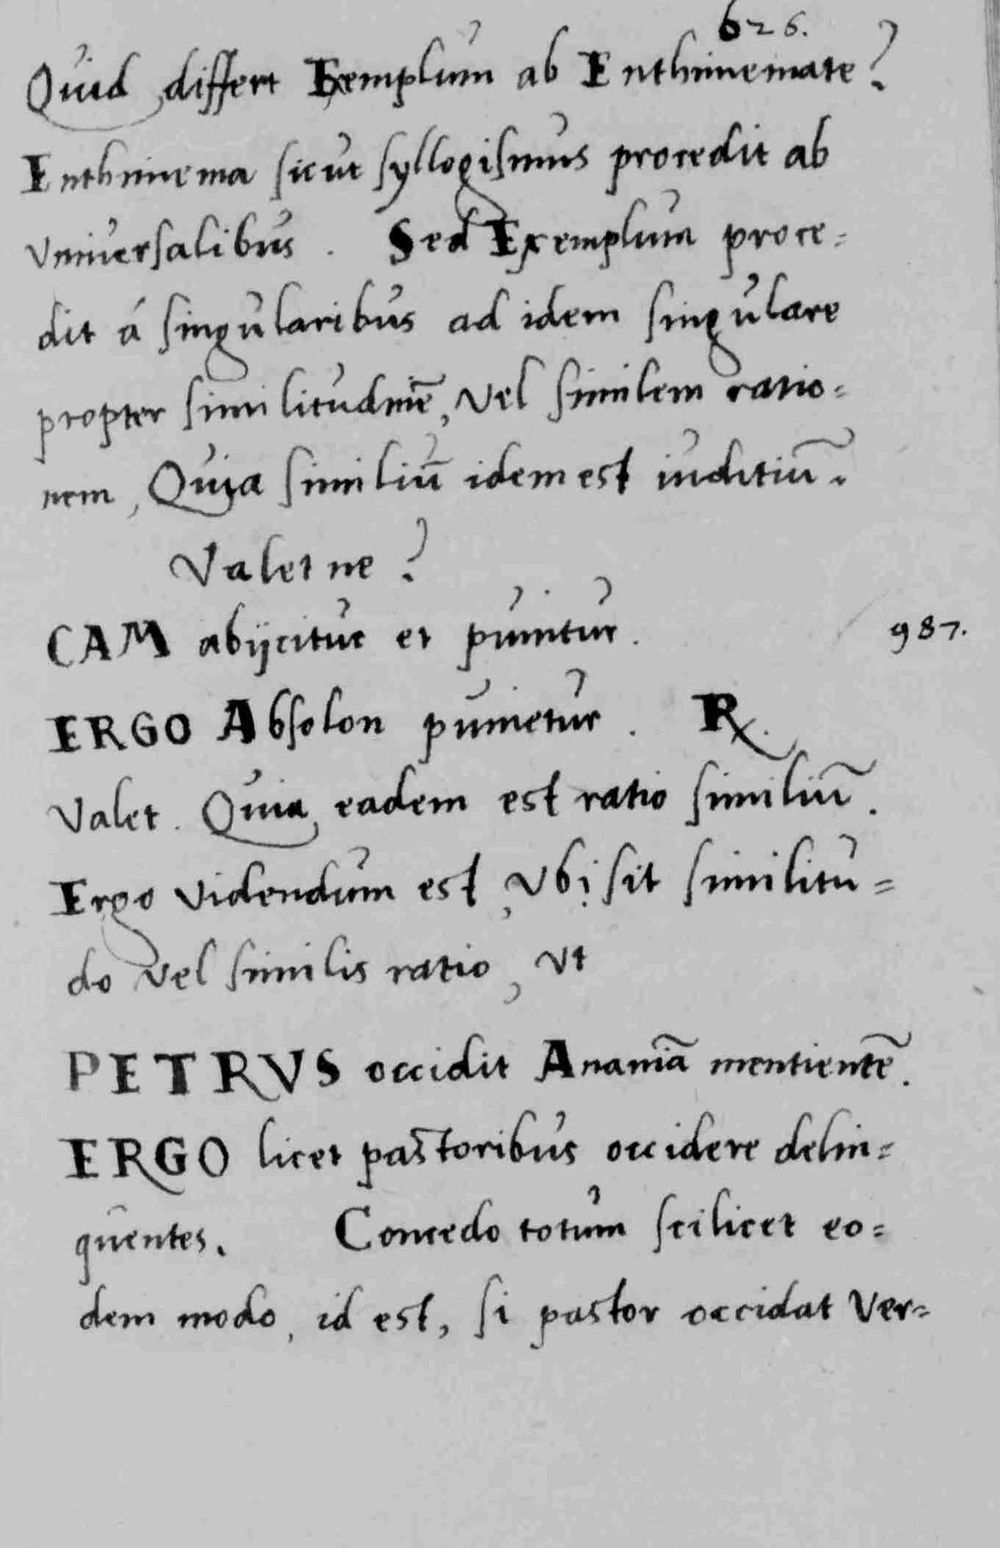 626.
Quid differt Exemplum ab Enthimemate?
Enthimema sicut syllogismus procedit ab
vniuersalibus. Sed Exemplum proce=
dit á singularibus ad idem singulare
propter similitudinē, vel similem ratio=
nem, Quia similiū idem est iuditiū.
Valet ne?
CAM abijcitur et punitur. 987.
ERGO Absolon punietur. R.
Valet. Quia eadem est ratio similiū.
Ergo videndum est, vbi sit similitu=
do vel similis ratio, vt
PETRVS occidit Ananiā mentientē.
ERGO licet pastoribus occidere delin=
quentes. Concedo totum scilicet eo=
dem modo, id est, si pastor occidat ver=